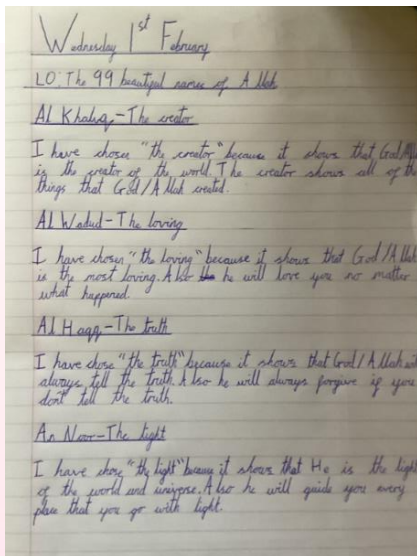 Wednesday 1st February
LO: The 99 beautiful names of Allah
Al Khaliq - The creator
I have chosen "the creator" because it shows that God/All
is the creator of the world. The creator shows all of the
things that God/Allah created.
Al Wadud - The loving
I have chosen "the loving" because it shows that God/Allah
is the most loving. Also he will love you no matter
what happened.
Al Haqq - The truth
I have chose "the truth" because it shows that God/Allah will
always tell the truth. Also he will always forgive if you
don't tell the truth.
An Noor - The light
I have chose "the light" because it shows that He is the light
of the world and universe. Also he will guide you every
place that you go with light.